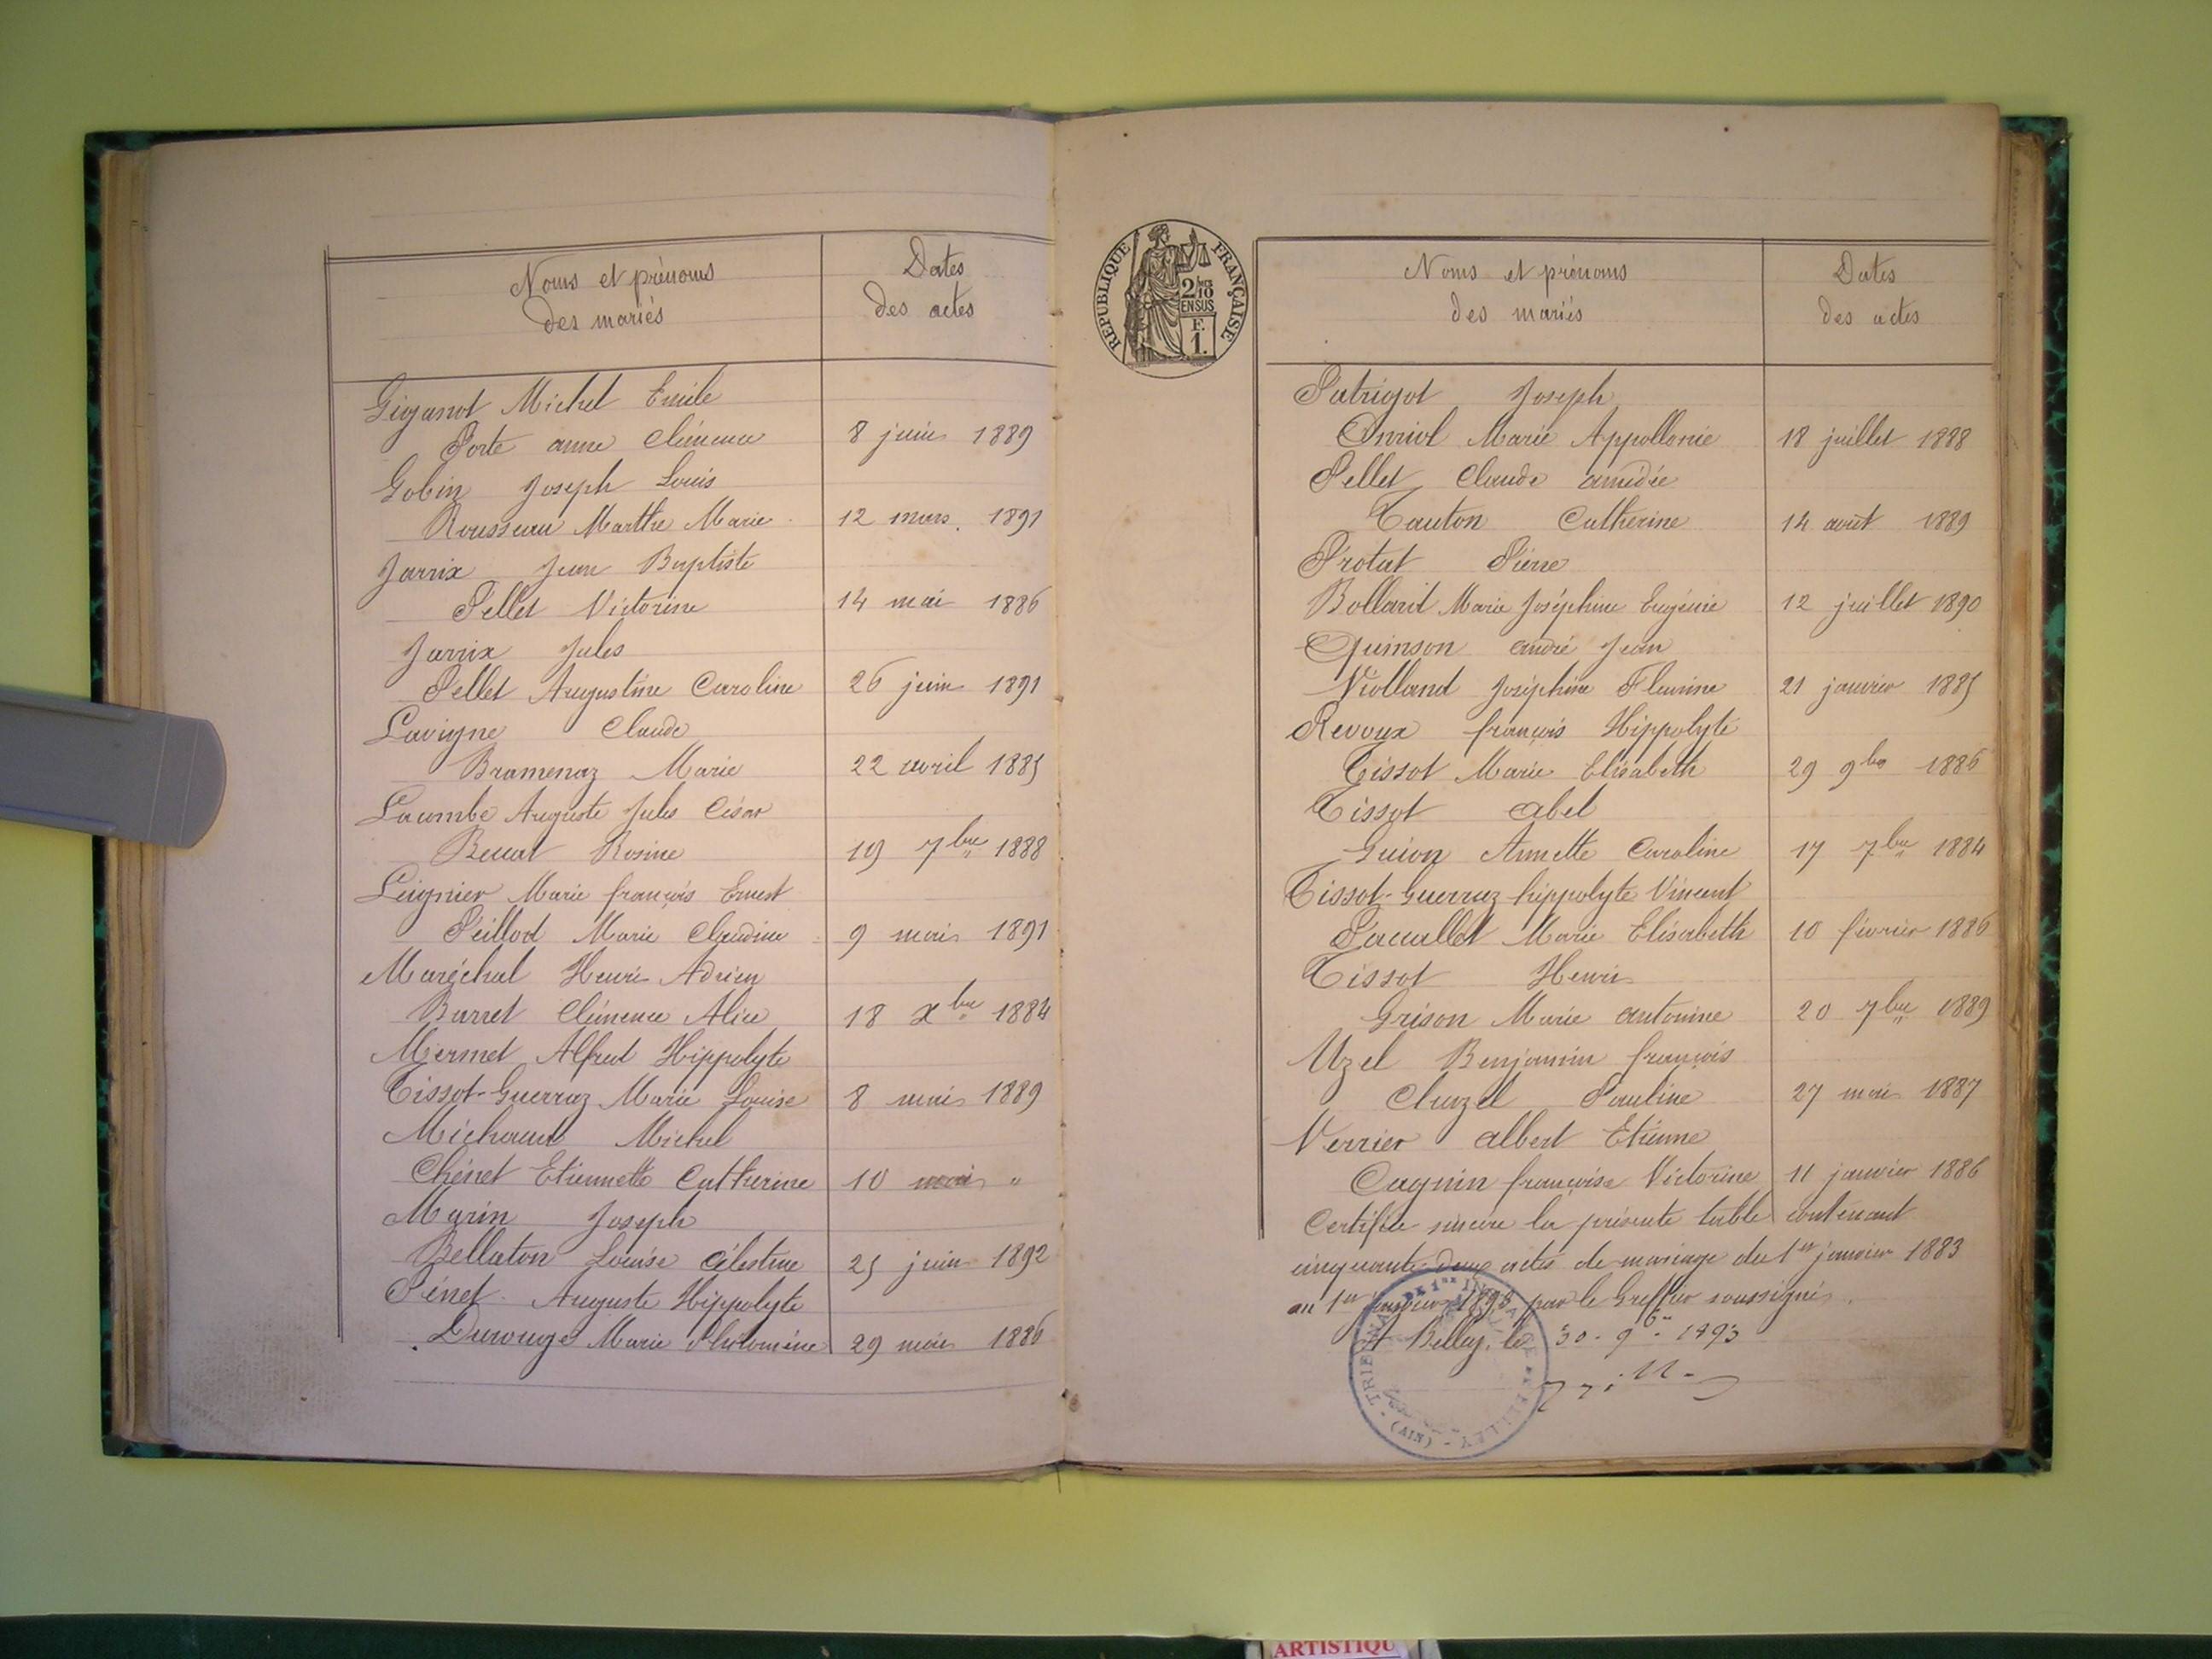 Noms et prénoms
des mariés
Dates
des actes
Giganot Michel Emile
Porte anne Clémence 8 juin 1889
Gobin Joseph Louis
Rousseau Marthe Marie 12 mars 1891
Jarrix Jean Baptiste
Pellet Victorine 14 mai 1886
Jarrix Jules
Pellet Augustine Caroline 26 juin 1891
Lavigne Claude
Bramenaz Marie 22 avril 1885
Lacombe Auguste Jules César
Rosine 19 7bre 1888
Leignier Marie françois Ernest
Peillod Marie Claudine 9 mai 1891
Maréchal Henri Adrien
Burret Clémence Alice 18 Xbre 1884
Mermet Alfred Hippolyte
Tissot-Guerraz Marie Louise 8 mai 1889
Michaud Michel
Chénet Etiennette Catherine 10 mai "
Marin Joseph
Bellaton Louise Célestine 25 juin 1892
Pénet Auguste Hippolyte
Durouge Marie Philomène 29 mai 1886
REPUBLIQUE FRANÇAISE
2/10
EN SUS
F.
1.
Noms et prénoms
des mariés
Dates
des actes
Patrigot Joseph
Marie Appollonie 18 juillet 1888
Pellet Claude amédée
Tauton Catherine 14 août 1889
Protat Pierre
Bollard Marie Joséphine Eugénie 12 juillet 1890
Quinson andré Jean
Violland Joséphine Fleurine 21 janvier 1885
Revoux françois Hippolyte
Tissot Marie Elisabeth 29 9bre 1886
Tissot abel
Guion Annette Caroline 17 7bre 1884
Tissot-Guerraz hippolyte Vincent
Pacallet Marie Elisabeth 10 février 1886
Tissot Henri
Grison Marie antonine 20 7bre 1889
Uzel Benjamin françois
Cluzel Pauline 27 mai 1887
Verrier albert Etienne
Cagnin françoise Victorine 11 janvier 1886
Certifiée sincère la présente table contenant
cinquante-deux actes de mariage du 1er janvier 1883
au 1er janvier 1893 par le Greffier soussigné.
A Belley, le 30 9bre 1893
TRIBUNAL DE 1RE INSTANCE DE BELLEY - (AIN) -
ARTISTIQU